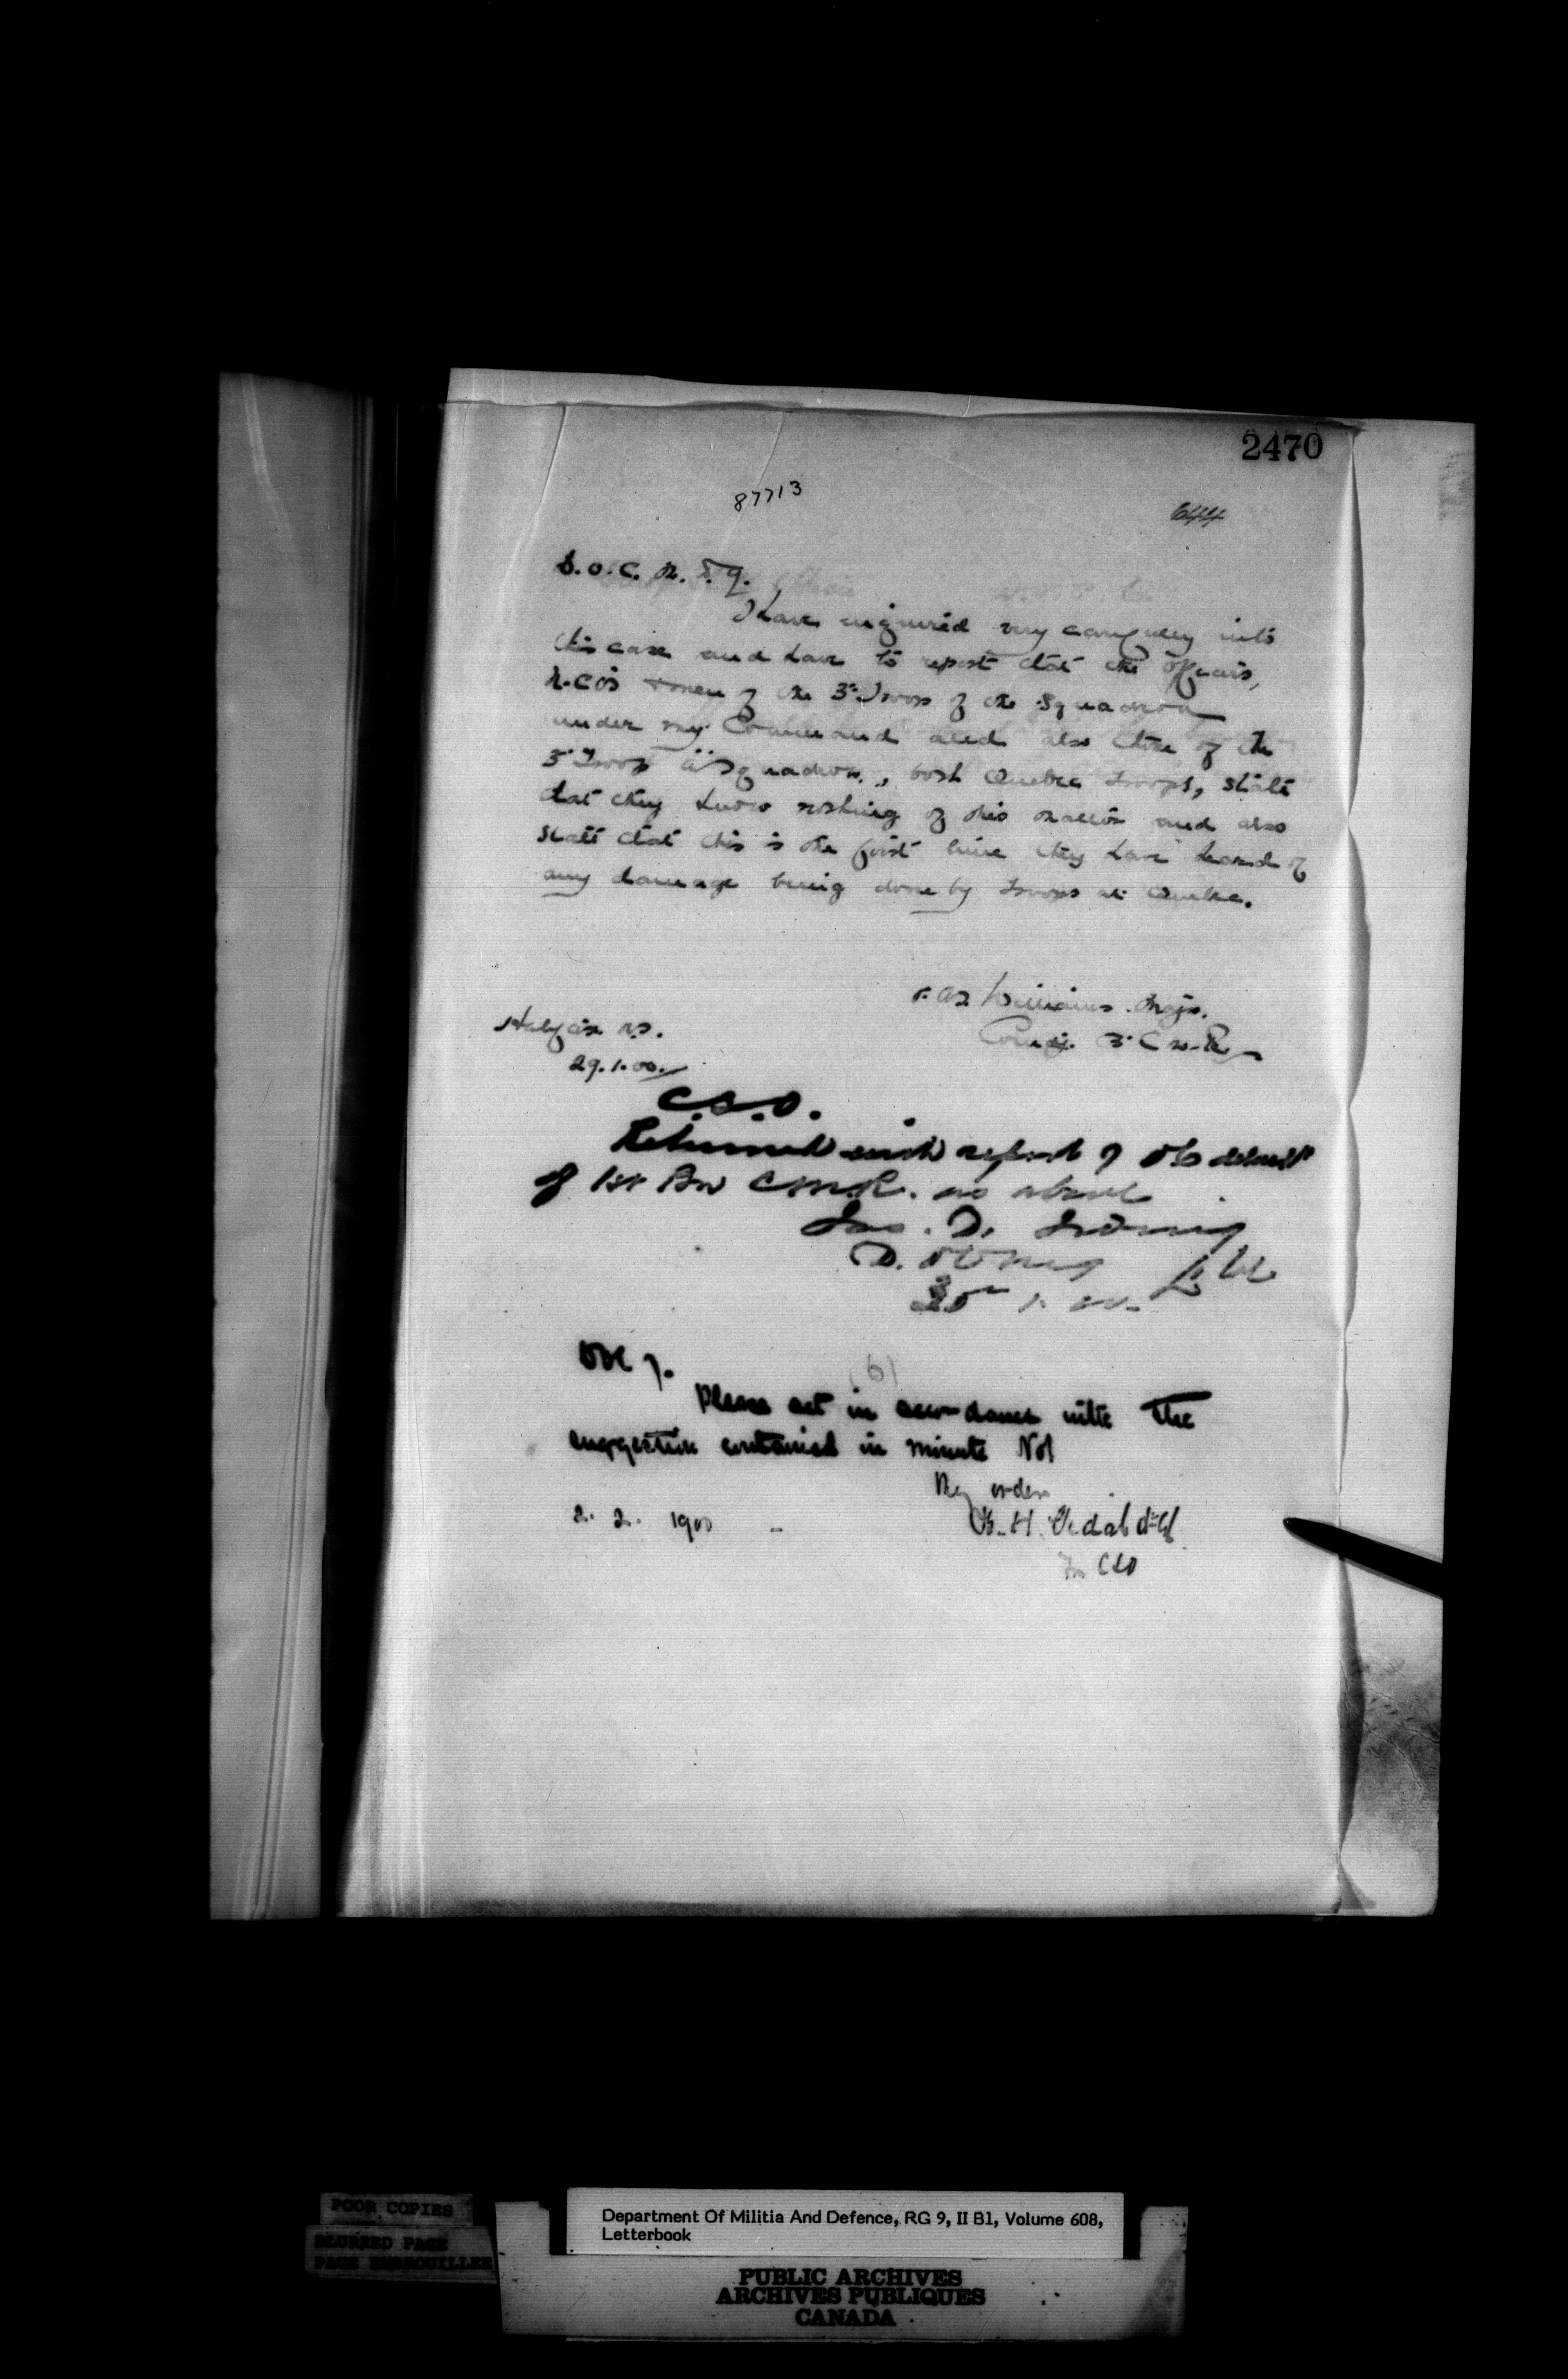 2470
87713
D.O.C. M.D. 9.
I have enquired very carefully into
this case and have to report that the officers,
N.C.O's & men of the 3rd Troop of the Squadron
under my Command and also those of the
3rd Troop "A" Squadron, both Quebec Troops, state
that they know nothing of this matter and also
state that this is the first time they have heard of
any damage being done by Troops at Quebec.
Williams Major.
Comdg. B. C.M.R.
Halifax N.S.
29.1.00.
C.S.O.
Returned with report of O/C
of 1st Bn C.M.R. as above
Jas. D. Irving
D.O.C. 9
1. 00.
DOC 9.
(6)
Please act in accordance with the
suggestion contained in minute No 1
By order
2. 2. 1900
B. H. Vidal Lt Col
for CSO
POOR COPIES
BLURRED PAGE
PAGE EMBROUILLEE
Department Of Militia And Defence, RG 9, II B1, Volume 608,
Letterbook
PUBLIC ARCHIVES
ARCHIVES PUBLIQUES
CANADA